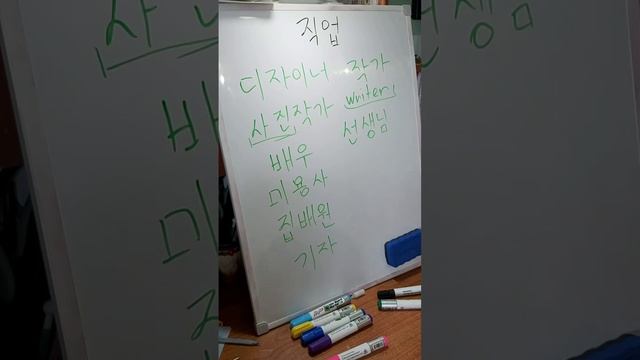 직업
디자이너 작가
사진작가 writer
배우 선생님
미용사
집배원
기자